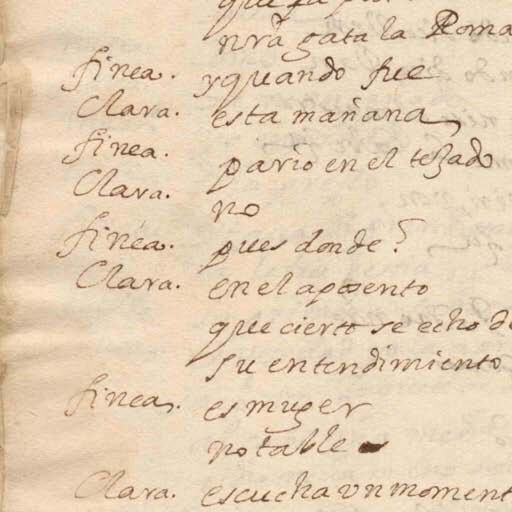 nrã gata la Roma
finea. y quando fue
Clara. esta mañana
finea. pario en el tejado
Clara. no
finea. pues donde?
Clara. en el aposento
que cierto se echo de
su entendimiento
finea. es muger
notable
Clara. escucha vn moment